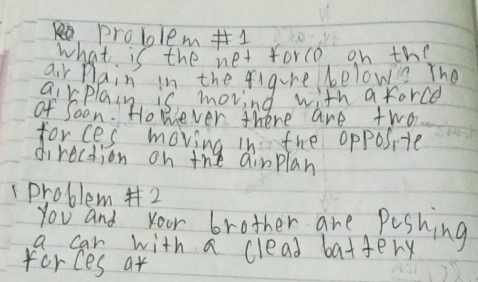 Problem #1
What is the net force on the
airplain in the figure below? The
airplain is moving with a force
of 500n. However there are two
forces moving in the opposite
direction on the airplan
Problem #2
You and your brother are pushing
a car with a dead battery
forces at